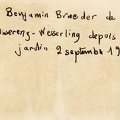 Benjamin Braeder de
Wesserling depuis
jardin 2 septembre 19